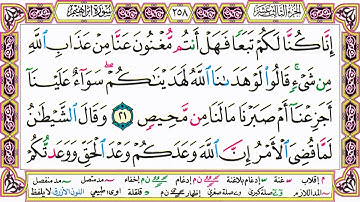 الجزء الثالث عشر ٢٥٨ سورة إبراهيم
إِنَّا كُنَّا لَكُمْ تَبَعًا فَهَلْ أَنتُم مُّغْنُونَ عَنَّا مِنْ عَذَابِ اللَّهِ
مِن شَيْءٍ ۚ قَالُوا لَوْ هَدَىٰنَا اللَّهُ لَهَدَيْنَاكُمْ ۖ سَوَاءٌ عَلَيْنَا
أَجَزِعْنَا أَمْ صَبَرْنَا مَا لَنَا مِن مَّحِيصٍ ٢١ وَقَالَ الشَّيْطَانُ
لَمَّا قُضِيَ الْأَمْرُ إِنَّ اللَّهَ وَعَدَكُمْ وَعْدَ الْحَقِّ وَوَعَدتُّكُمْ